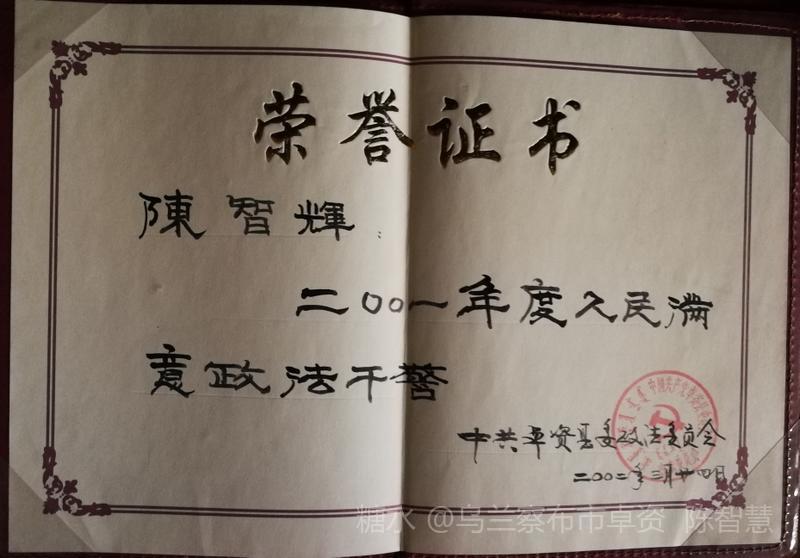 荣誉证书
陳智輝：
二〇〇一年度人民满
意政法干警
中共卓资县委政法委员会
二〇〇二年三月廿四日
糖水 @乌兰察布市卓资 陈智慧